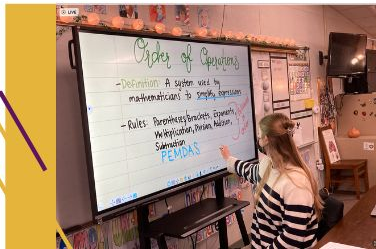 LIVE
Order of Operations
-Definition: A system used by
mathematicians to simplify expressions
-Rules: Parentheses/Brackets, Exponents,
Multiplication, Division, Addition,
Subtraction
PEMDAS